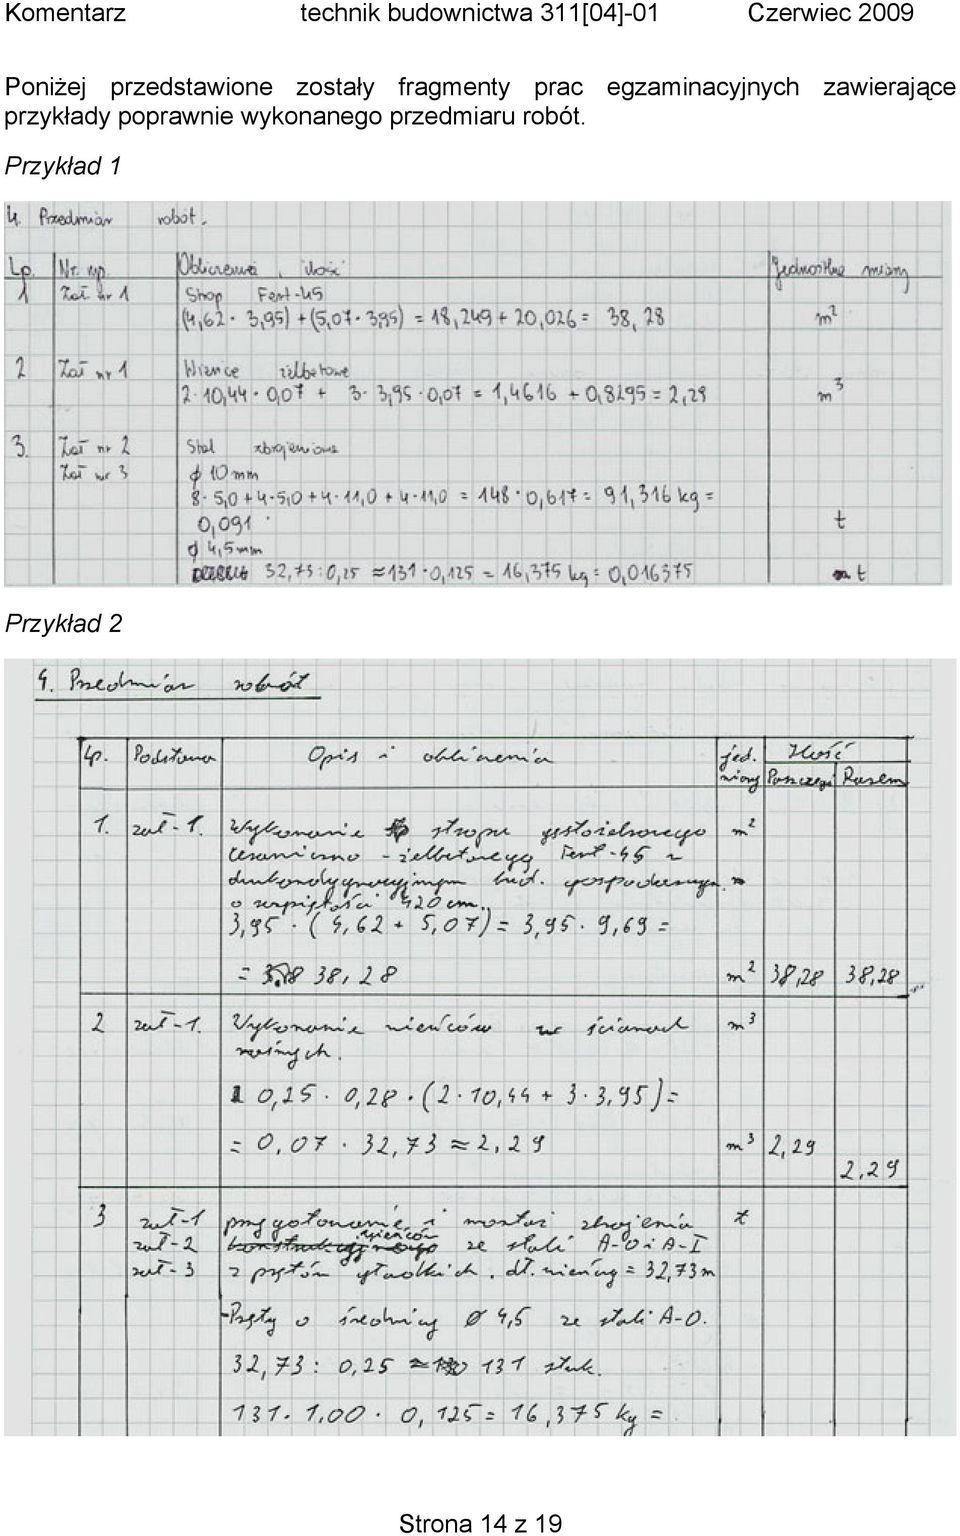 Komentarz technik budownictwa 311[04]-01 Czerwiec 2009
Poniżej przedstawione zostały fragmenty prac egzaminacyjnych zawierające
przykłady poprawnie wykonanego przedmiaru robót.
Przykład 1
4. Przedmiar robót.
Lp. Nr. Obliczenia, ilość Jednostka miary
1 Zał nr 1 Strop Fert-45
(4,62 · 3,95) + (5,07 · 3,95) = 18,249 + 20,026 = 38,28 m²
2 Zał nr 1 Wieńce żelbetowe
2·10,44 · 0,07 + 3· 3,95 · 0,07 = 1,4616 + 0,8295 = 2,29 m³
3. Zał nr 2 Stal zbrojeniowa
Zał nr 3 ϕ 10 mm
8· 5,0 + 4·5,0 + 4·11,0 + 4·11,0 = 148 · 0,617 = 91,316 kg =
0,091 t
ϕ 4,5 mm
32,73 : 0,25 ≈ 131 · 0,125 = 16,375 kg = 0,016375 t
Przykład 2
4. Przedmiar robót
Lp. Podstawa Opis i obliczenia jed. miary Ilość
Poszczegó Razem
1. zał-1. Wykonanie stropu gęstożebrowego m²
ceramiczno - żelbetowego Fert-45 w
dwukondygnacyjnym bud. gospodarczym.
o rozpiętości 420 cm.
3,95 · (4,62 + 5,07) = 3,95 · 9,69 =
= 38,28 m² 38,28 38,28
2 zał-1. Wykonanie wieńców w ścianach m³
nośnych.
0,25 · 0,28 · (2 · 10,44 + 3 · 3,95) =
= 0,07 · 32,73 ≈ 2,29 m³ 2,29
2,29
3 zał-1 przygotowanie i montaż zbrojenia t
zał-2 wieńców ze stali A-0 i A-I
zał-3 z prętów gładkich. dł. wieńcy = 32,73 m
-Pręty o średnicy ø 4,5 ze stali A-0.
32,73 : 0,25 ≈ 131 sztuk.
131 · 1,00 · 0,125 = 16,375 kg =
Strona 14 z 19